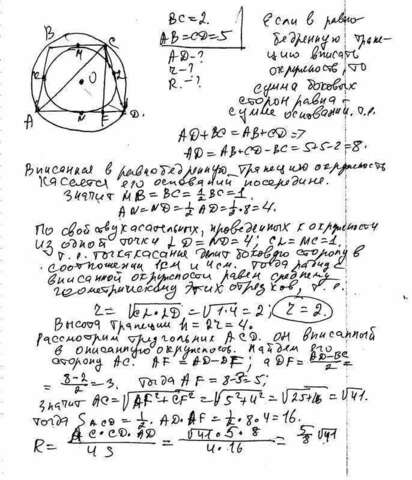 BC=2.
AB=CD=5
AD-?
r-?
R.-?
Если в равно
бедренную трапе-
цию вписать
окружность, то
сумма боковых
сторон равна-
сумме оснований. т.е.
B
M
C
O
A
N
E
D.
AD+BC=AB+CD=7
AD=AB+CD-BC=5+5-2=8.
Вписанная в равнобедренную трапецию окружность
касается его оснований посередине.
Значит MB=BC=½BC=1.
AN=ND=½AD=½·8=4.
По свойству касательных, проведенных к окружности
из одной точки LD=ND=4; CL=MC=1.
т.е. точка касания делит боковую сторону в
соотношении 1см и 4см. Тогда радиус
вписанной окружности равен среднему
геометрическому этих отрезков, т.е.
r=√CL·LD=√1·4=2; r=2.
Высота трапеции h=2r=4.
Рассмотрим треугольник ACD. он вписанный
в описанную окружность. Найдем его
сторону AC. AF=AD-DF; а DF=AD-BC/2=
=8-2/2=3. Тогда AF=8-3=5;
Значит AC=√AF²+CF²=√5²+4²=√25+16=√41.
тогда S ACD=½·AD·AF=½·8·4=16.
R=AC·CD·AD/4S=√41·5·8/4·16=5/8√41